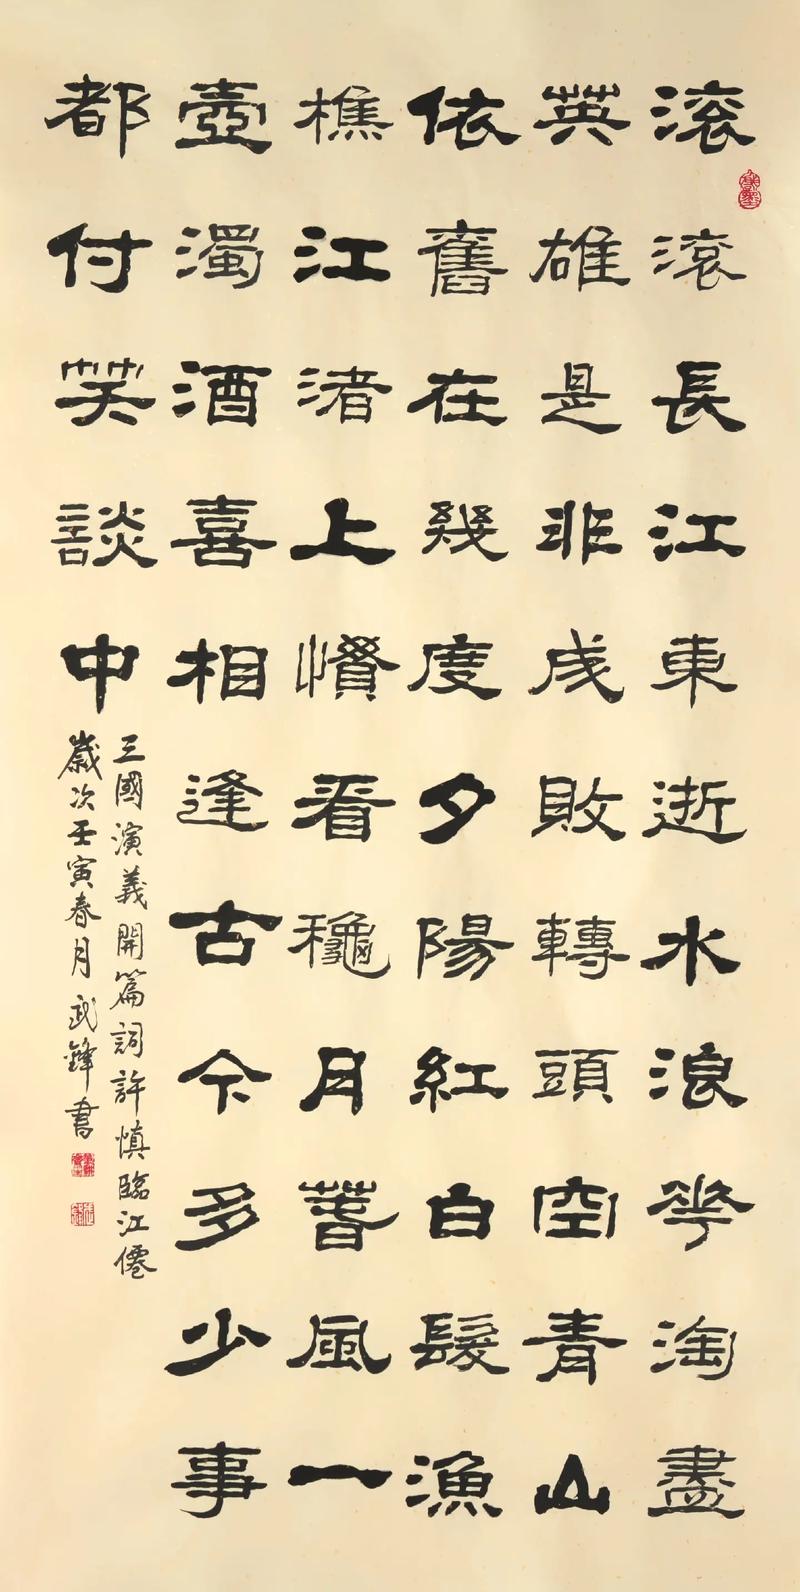 滚滚長江東逝水浪花淘盡
英雄是非成敗轉頭空青山
依舊在幾度夕陽紅白髮漁
樵江渚上慣看穐月萅風一
壺濁酒喜相逢古今多少事
都付笑談中
三國演義開篇詞許慎臨江僊
歲次壬寅春月武鋒書